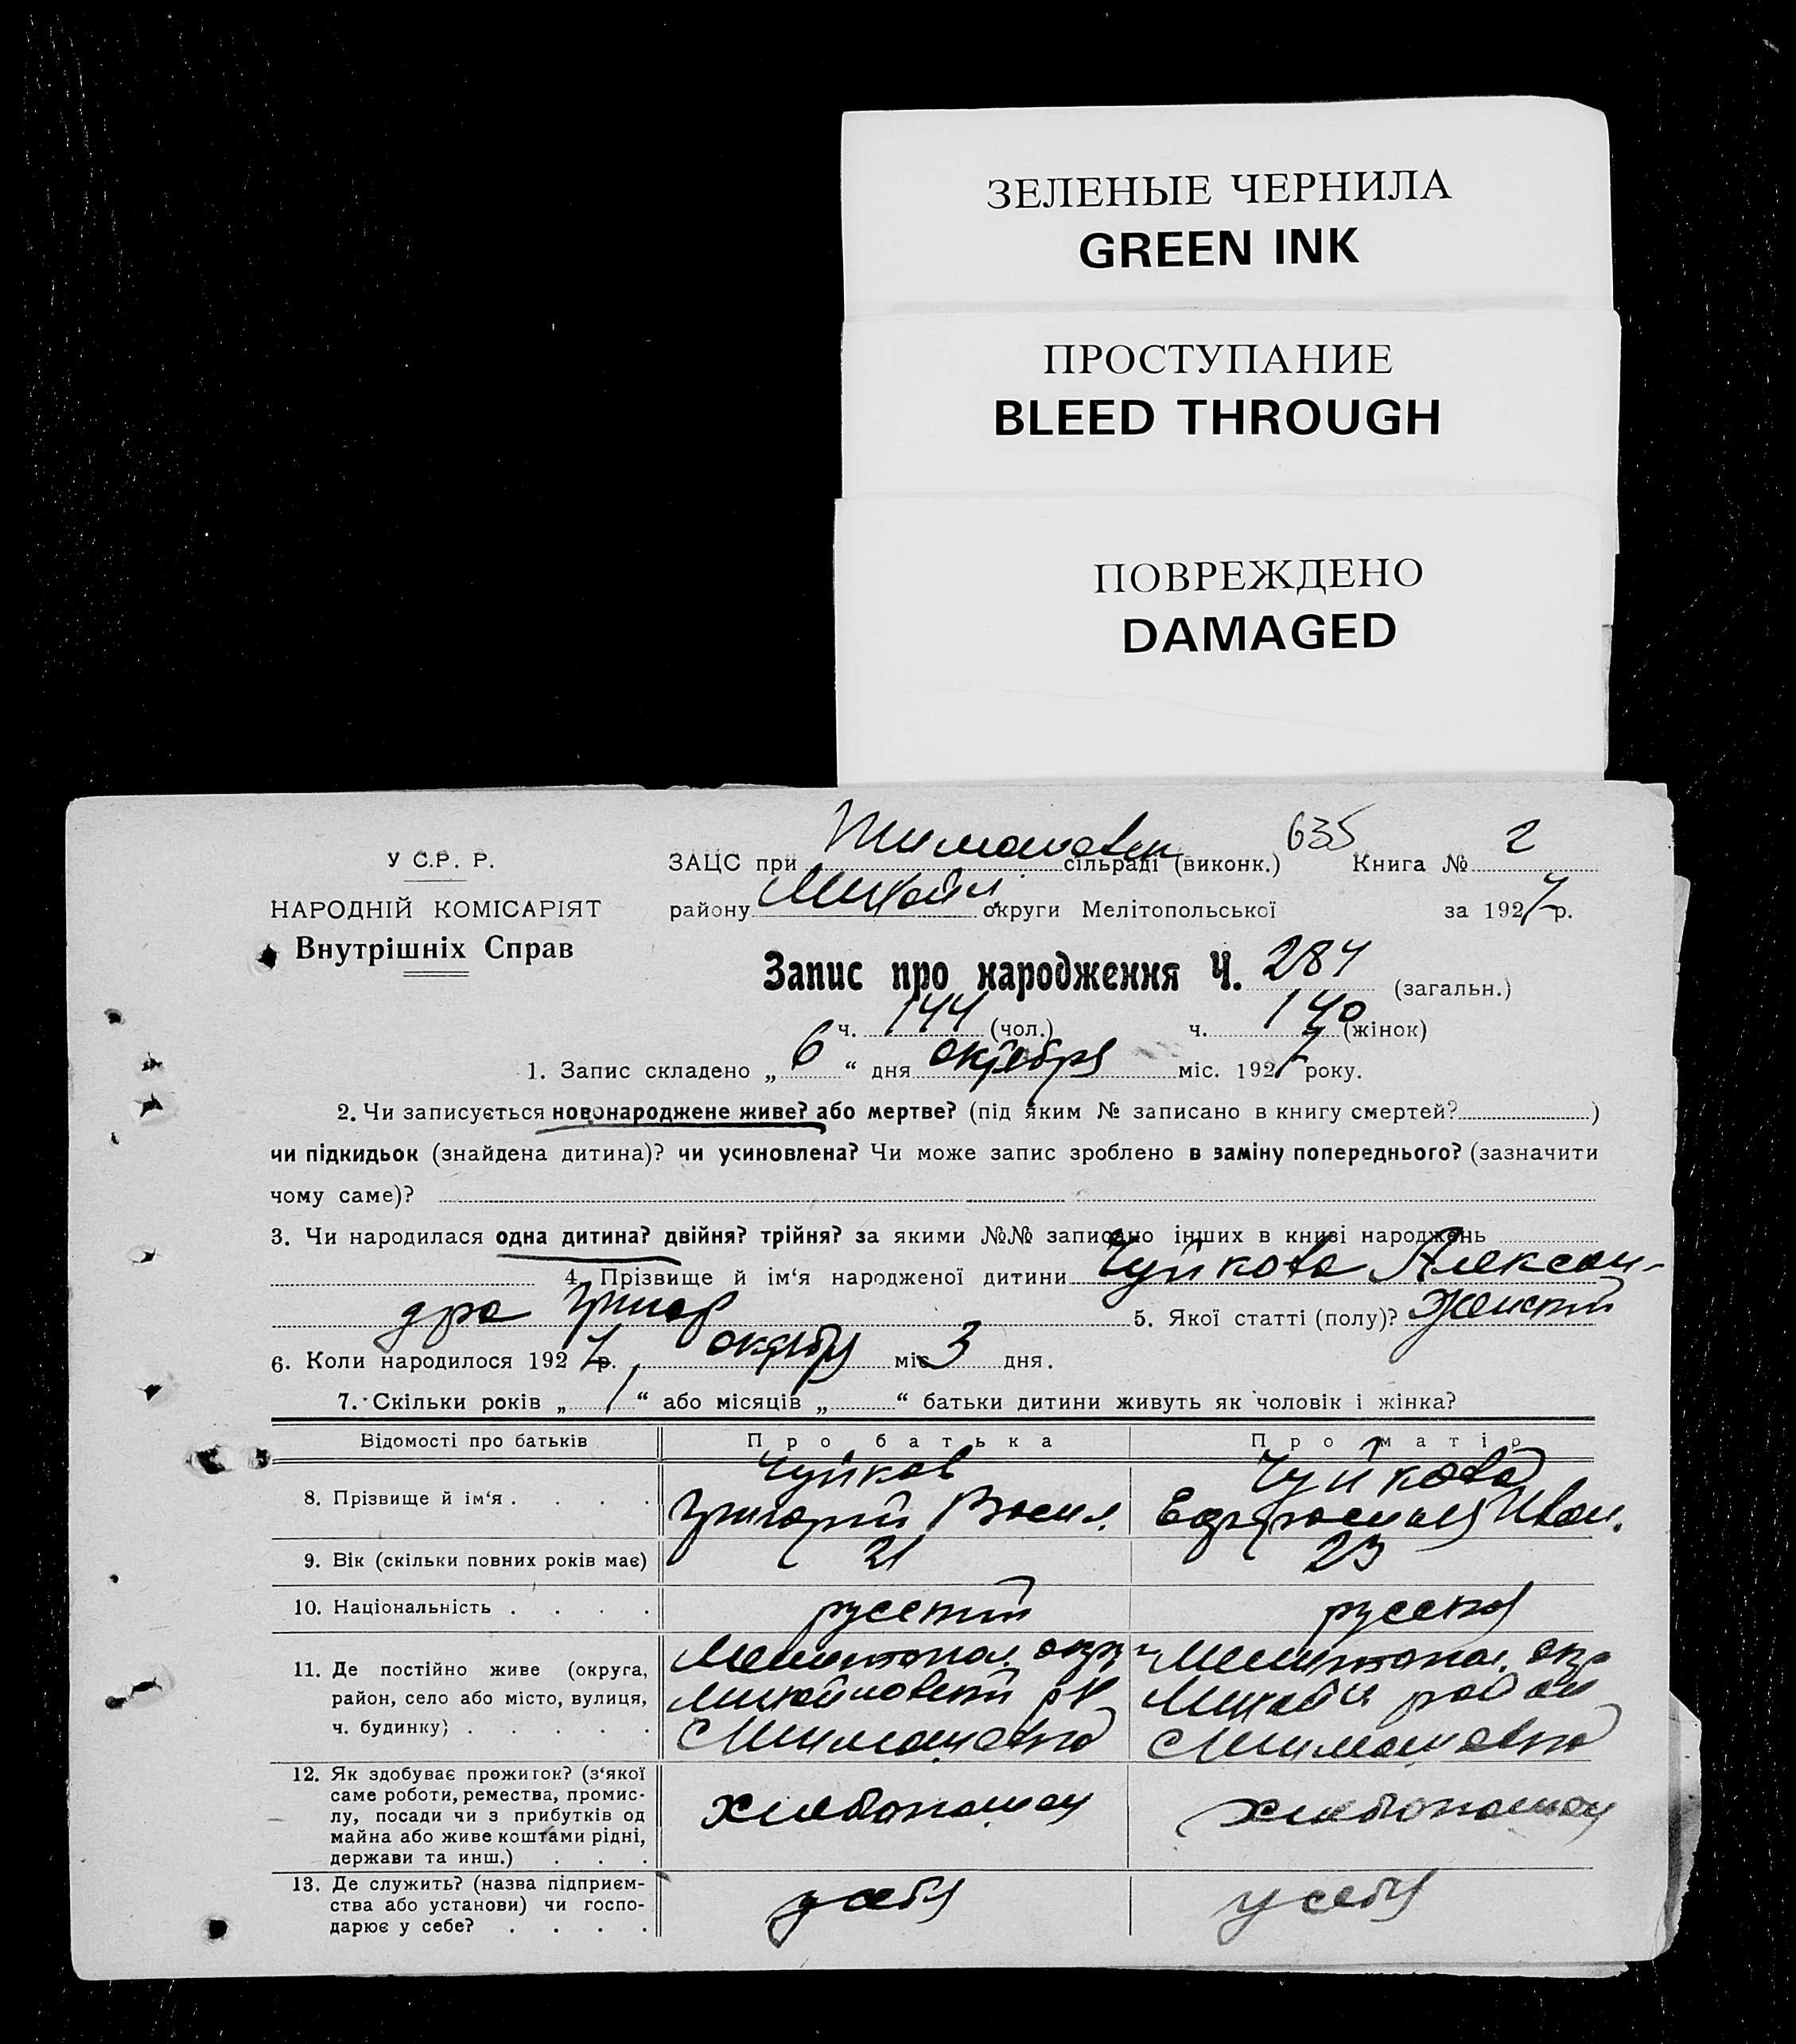 ЗЕЛЕНЫЕ ЧЕРНИЛА
GREEN INK
ПРОСТУПАНИЕ
BLEED THROUGH
ПОВРЕЖДЕНО
DAMAGED
У С.Р. Р.
НАРОДНІЙ КОМІСАРІЯТ
Внутрішніх Справ
635
ЗАЦС при Тимошевск сільраді (виконк.) Книга № 2
району Михайл. округи Мелітопольської за 1927 р.
Запис про народження Ч. 284 (загальн.)
ч. 144 (чол.) ч. 140 (жінок)
1. Запис складено „ 6 “ дня октября міс. 1927 року.
2. Чи записується новонароджене живе? або мертве? (під яким № записано в книгу смертей? )
чи підкидьок (знайдена дитина)? чи усиновлена? Чи може запис зроблено в заміну попереднього? (зазначити
чому саме)?
3. Чи народилася одна дитина? двійня? трійня? за якими №№ записано інших в книзі народжень
4. Прізвище й ім‘я народженої дитини Чуйкова Алексан-
дра Григор 5. Якої статті (полу)? Женский
6. Коли народилося 1927 р. октября міс 3 дня.
7. Скільки років „ 1 “ або місяців „ “ батьки дитини живуть як чоловік і жінка?
Відомості про батьків Про батька Про матір
8. Прізвище й ім‘я . . . . Чуйков Григорий Васил. Чуйкова Ефросиния Иван.
9. Вік (скільки повних років має) 21 23
10. Національність . . . . русский русская
11. Де постійно живе (округа, Мелитопол. окр Мелитопол. окр
район, село або місто, вулиця, Михайловский р Михайл район
ч. будинку) . . . . . С Тимошевка С Тимошевка
12. Як здобуває прожиток? (з‘якої
саме роботи, ремества, промис-
лу, посади чи з прибутків од хлебопашец хлебопашец
майна або живе коштами рідні,
держави та инш.) . . .
13. Де служить? (назва підприєм-
ства або установи) чи госпо- у себя у себя
дарює у себе? . . . .